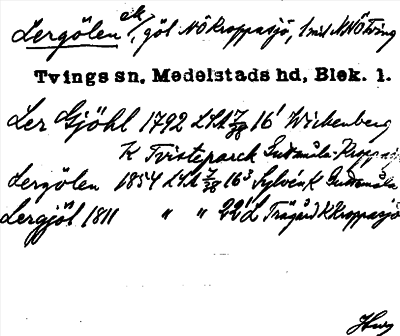 Lergölen ek/, göl NÖ Kroppasjö, 1 mil NNÖ Tving
Tvings sn. Medelstads hd, Blek. 1.
Ler Gjöhl 1792 LSA 7/28 16¹ Wickenberg
K Tvisteparck Gudmåla-Kroppasjö
Lergölen 1854 LSA 7/28 16³ Sylvén K Gudmåla
Lergjöl 1811 " " 22¹ L Trägård K Kroppasjö